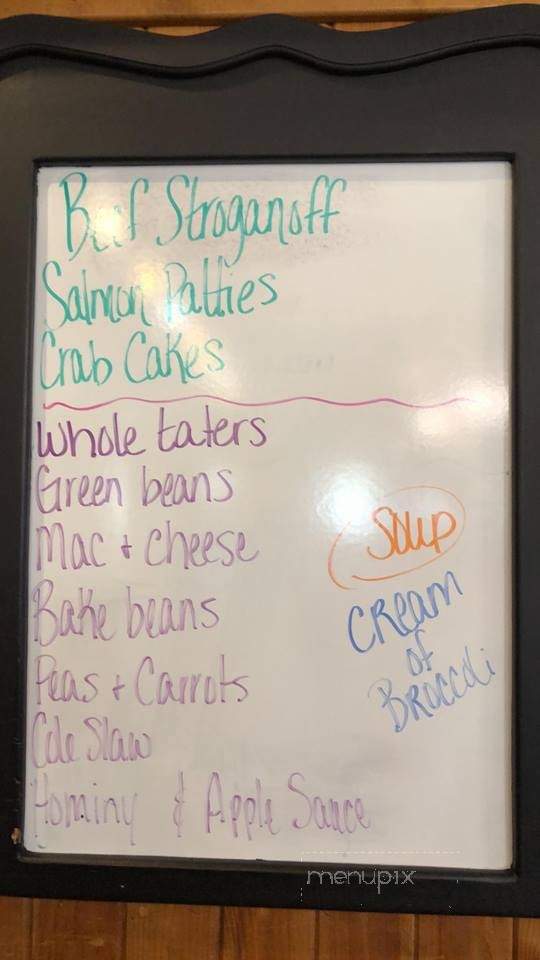 Beef Stroganoff
Salmon Patties
Crab Cakes
Whole taters
Green beans
Mac + cheese
Bake beans
Peas + Carrots
Cole Slaw
Hominy & Apple Sauce
Soup
CREAM
of
BROCCOLI
menupix